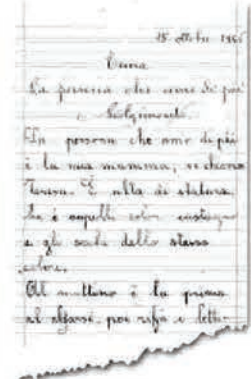 15 Ottobre
Tema
La persona che amo di più
Svolgimento
La persona che amo di più
è la mia mamma, si chiama
Teresa. È alta di statura,
ha i capelli color castagno
e gli occhi dello stesso
colore.
Al mattino è la prima
ad alzarsi, poi rifà i letti